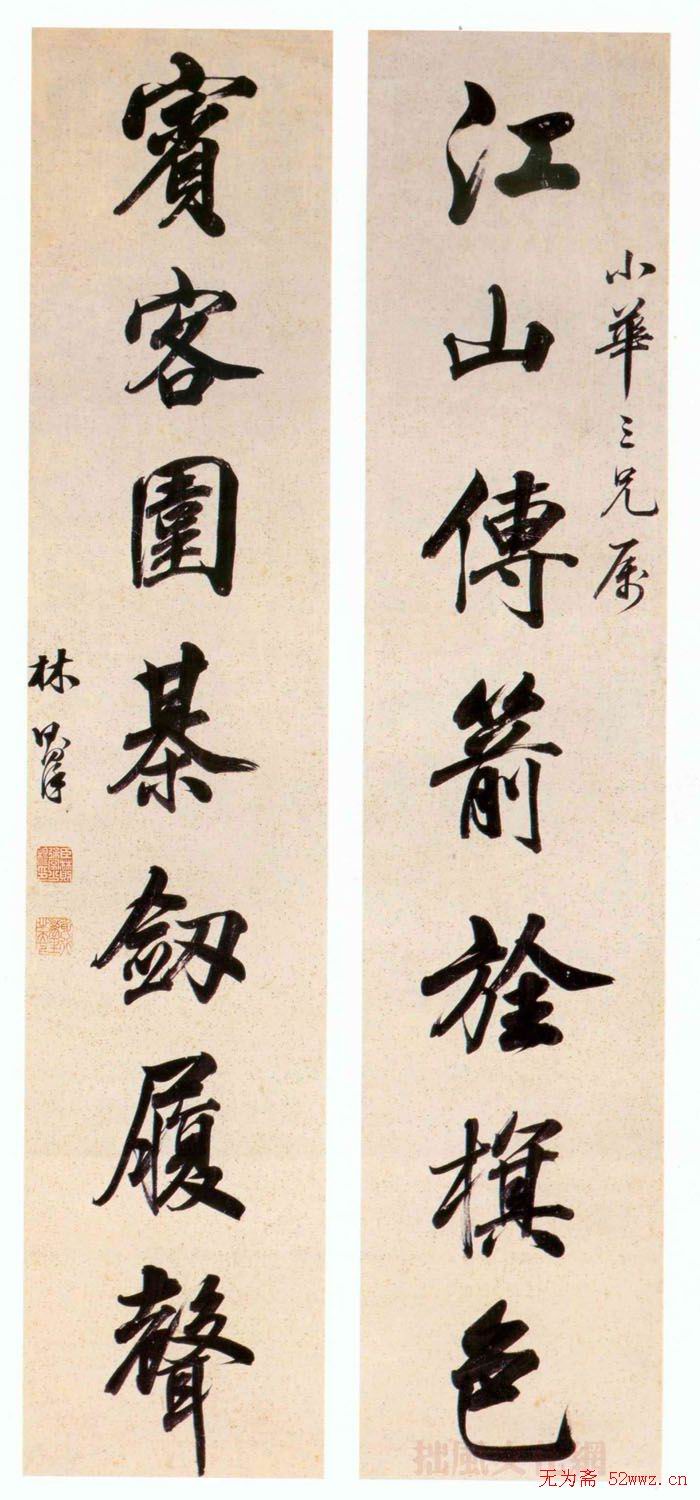 小華三兄属
江山傳箭旌旗色
賓客圍棊劔履聲
林則徐
拙風文化網
无为斋 52wwz.cn